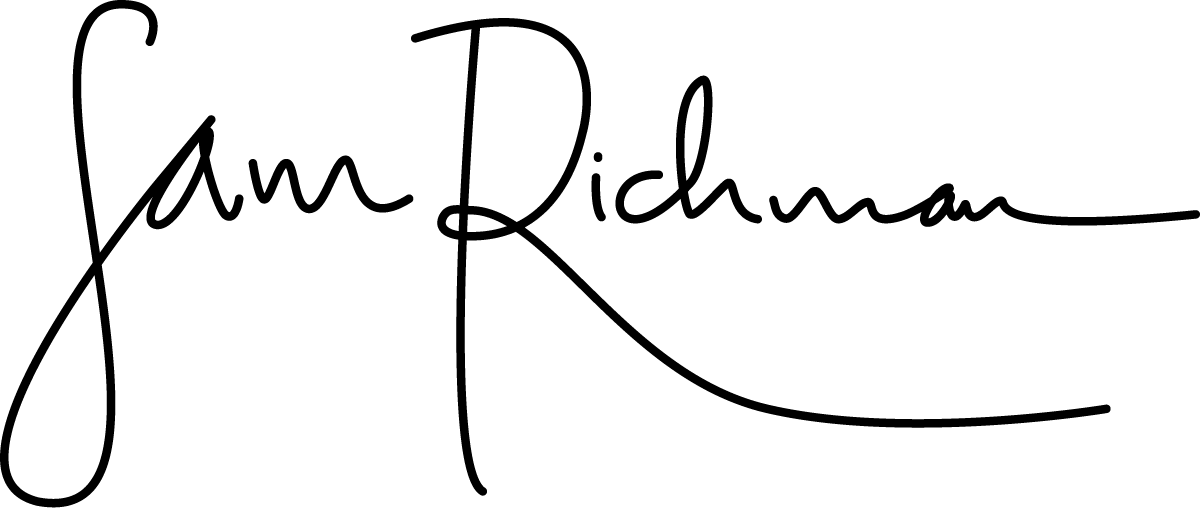 Sam Richman